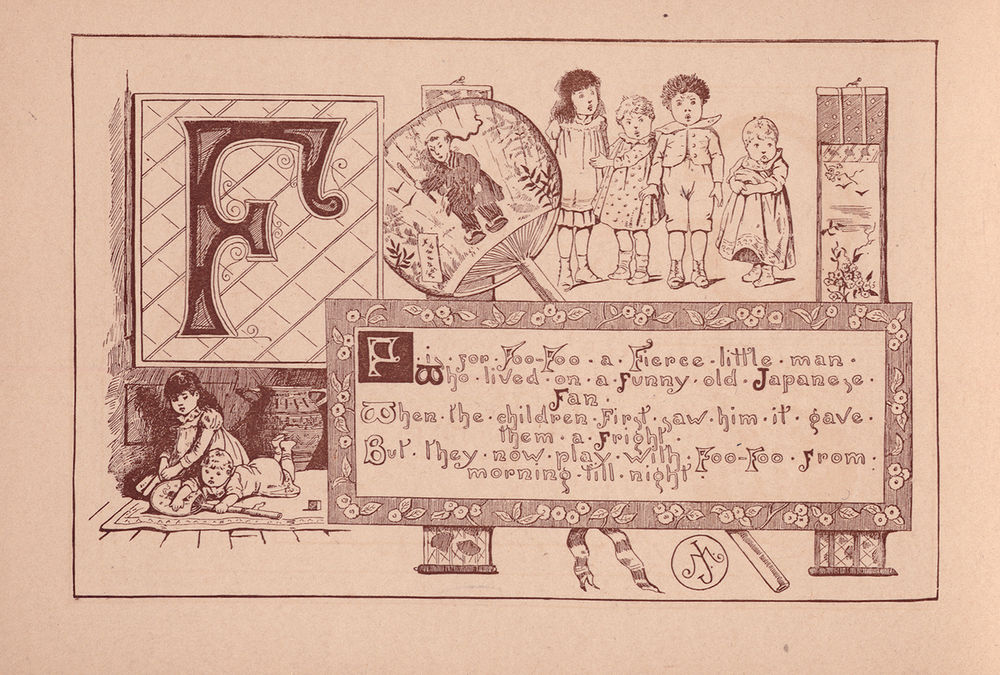 F
F is for Foo-Foo a Fierce little man
Who lived on a Funny old Japanese
Fan.
When the children First saw him it gave
them a Fright.
But they now play with Foo-Foo From
morning till night.